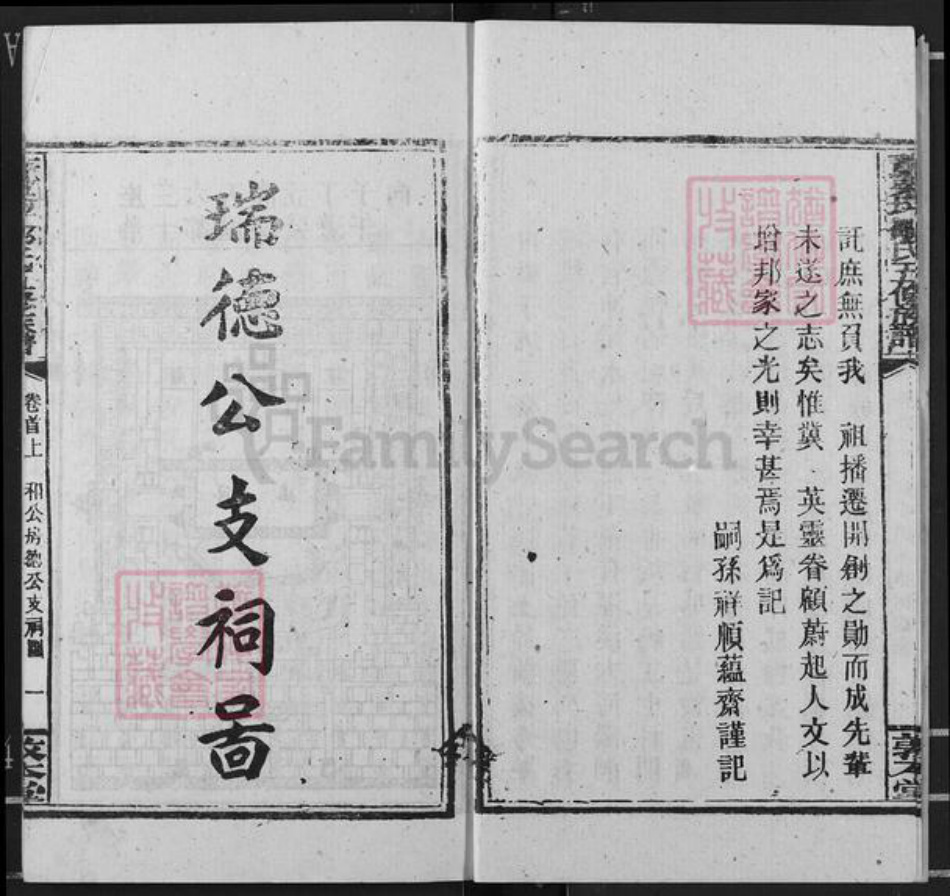 託庶無負我 祖播遷開創之勛而成先輩
未送之志矣惟冀 英靈眷顧蔚起人文以
增邦家之光則幸甚焉是為記
嗣孫祥順蘊齋謹記
瑞德公支祠啚
卷首上
和公房德公支祠圖
一
FamilySearch